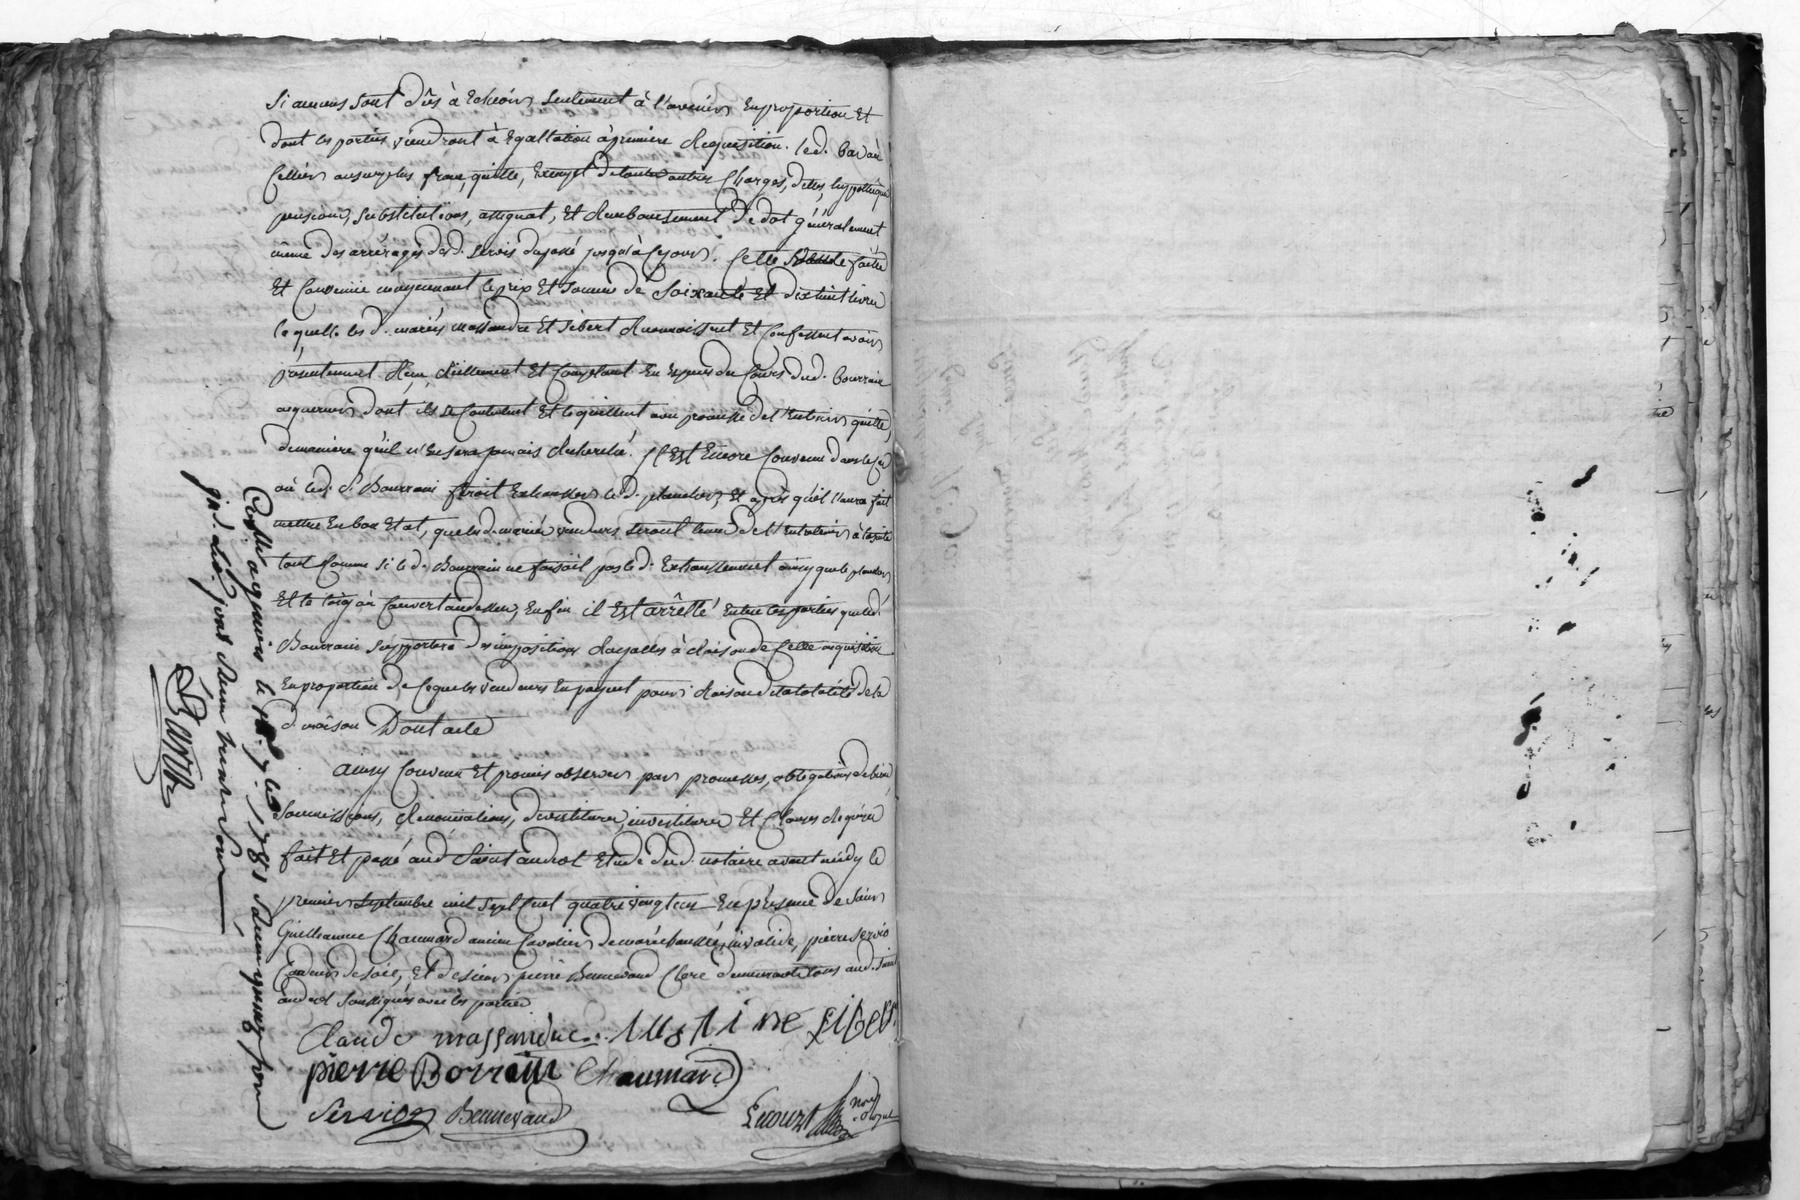 si aucuns sont dûs à Echéoir seulement à l'avenir En proportion Et
dont les parties viendront à Egallation à premiere Requisition. led. bas ou
Cellier au surplus franc, quitte, Exempt de toutes autres Charges, dettes, hypotheques
pensions, substitutions, assignat, Et Remboursement de dot généralement
même des arrérages dud. servis du passé jusqu'à ce jour. Cette vente faitte
Et Convenüe moyennant le prix Et somme de soixante Et dix huit livres
laquelle les d. mariés massandre Et Sibert Reconnoissent Et Confessent avoir
présentement Réçu Réellement Et Comptant En Especes du Cours dud. bourrain
acquereur dont ils se Contentent Et le quittent avec promesse de l'Entenir quitte,
de maniere qu'il n'En sera jamais Recherché. Il Est Encore Convenu dans le Cas
où led. d. Bourrain feroit Exhausser le d. plancher, Et après qu'il l'aura fait
mettre En bon Etat, que les d. mariés vendeurs seront tenus de l'Entretenir à la suite
tout Comme si le d. Bourrain ne faisoit pas le d. Exhaussement ainsy que le plancher
Et le toit ou Couvert au dessus, Enfin il Est arrêtté Entre les parties que led.
Bourrain supportera des impositions Royalles à Raison de Cette acquisition
En proportion de Ce que les vendeurs En payent pour Raison de la totalité de la
d. maison Dont acte
Ainsy Convenu Et promis observer par promesses, obligations de biens
soumissions, Renonciations, devestitures, investitures Et Clauses Requises
fait Et passé aud. Saint andeol Etude dud. notaire avant midy le
premier septembre mil sept Cent quatre vingt un En présence de Sieur
Guilleaume Chaumard ancien Cavalier de maréchaussée, invalide, pierre servio
de soie, Et de sieur pierre Bennevaud Clerc demeurants tous aud. saint
andeol soussignés avec les parties
Claude massandre. IUSTINE SIBERT
pierre Borrain Chaumard
Servio Bennevaud
not.
Con.lé a le 7bre 1781